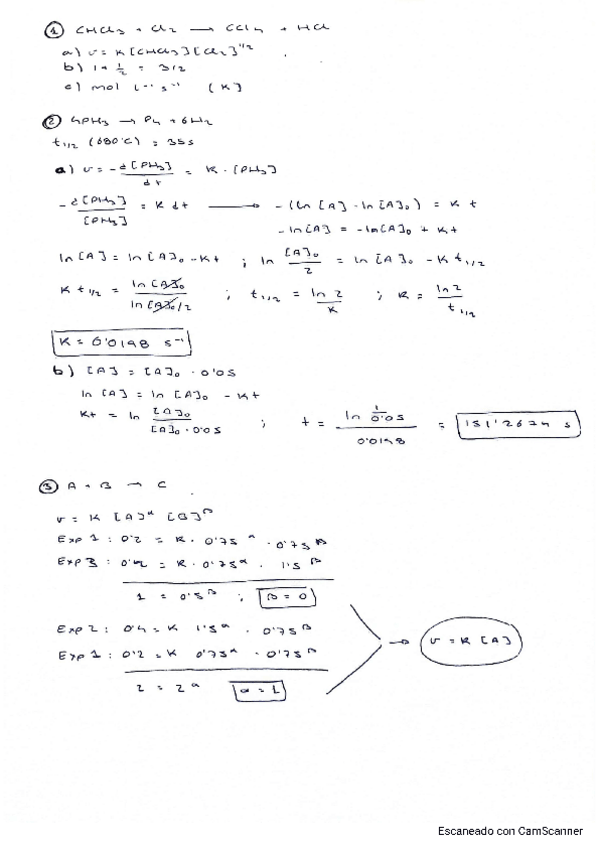 ① CHCl3 + Cl2 → CCl4 + HCl
a) v = K [CHCl3] [Cl2]^1/2
b) 1 + 1/2 = 3/2
c) mol s⁻¹ (K)
② 4PH3 → P4 + 6H2
t1/2 (680°C) = 35s
a) v = - d[PH3]/dt = K · [PH3]
- d[PH3]/[PH3] = K dt → -(ln [A] - ln [A]0) = K t
- ln [A] = - ln [A]0 + Kt
ln [A] = ln [A]0 - Kt ; ln [A]0/2 = ln [A]0 - K t1/2
K t1/2 = ln [A]0 / ln [A]0/2 ; t1/2 = ln 2/K ; K = ln 2/t1/2
K = 0'0198 s⁻¹
b) [A] = [A]0 · 0'05
ln [A] = ln [A]0 - Kt
Kt = ln [A]0/[A]0 · 0'05 ; t = ln 1/0'05 / 0'0198 = 151'2674 s
③ A + B → C
v = K [A]^α [B]^β
Exp 1 : 0'2 = K · 0'75^α · 0'75^β
Exp 3 : = K · 0'75^α · 1'5^β
1 = 0'5^β ; β = 0
Exp 2 : 0'4 = K 1'5^α · 0'75^β
Exp 1 : 0'2 = K 0'75^α · 0'75^β
→ v = K [A]
2 = 2^α α = 1
Escaneado con CamScanner